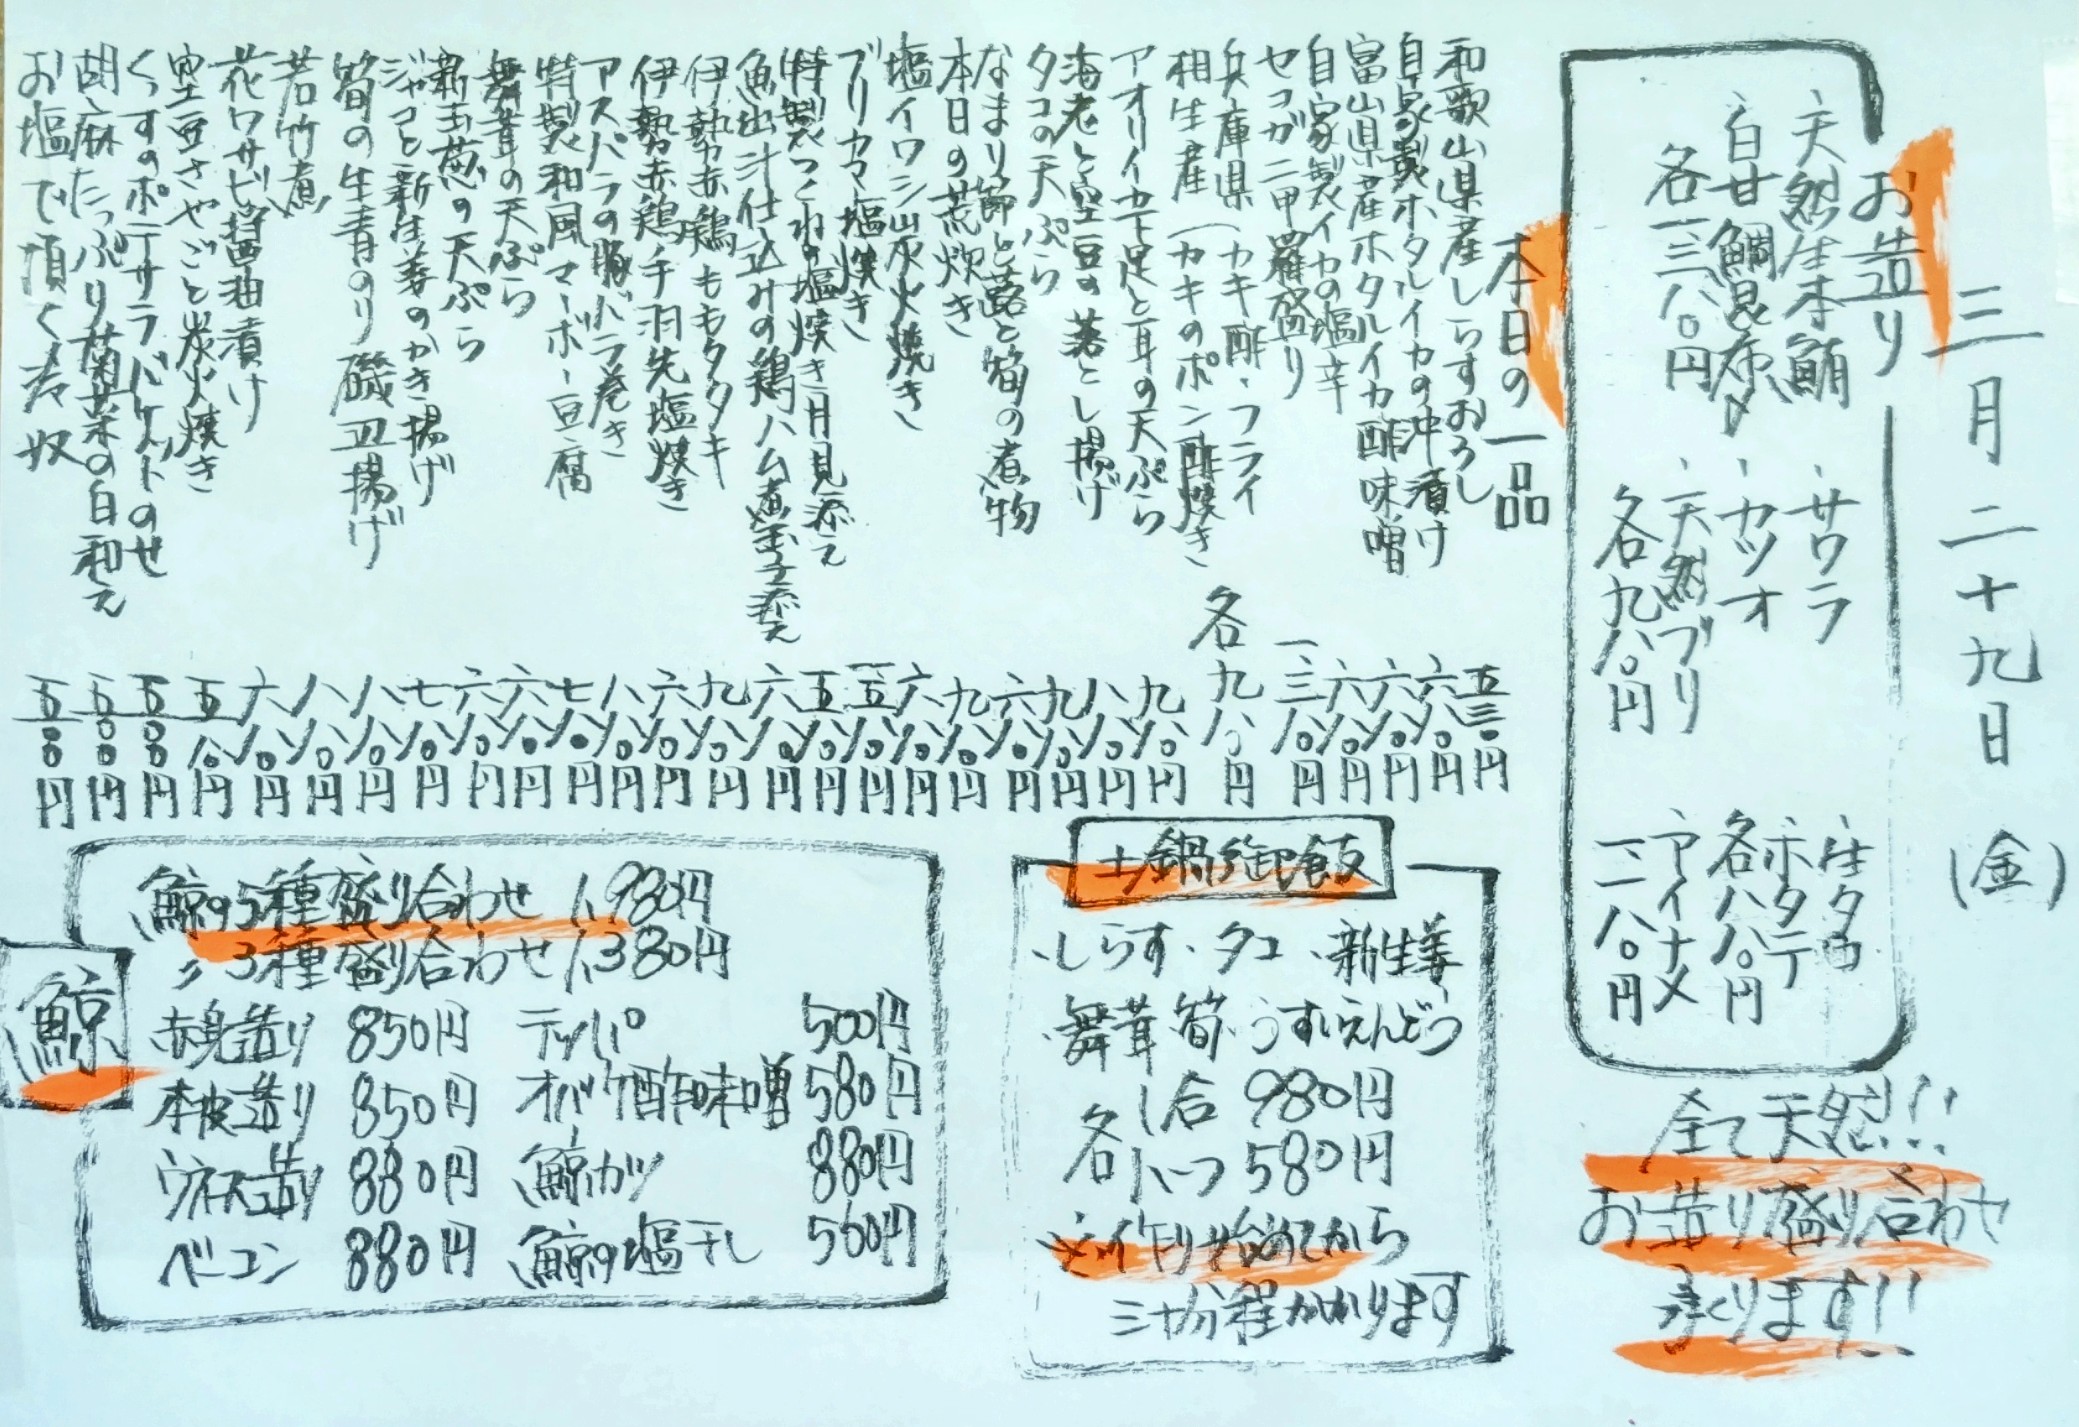 三月二十九日(金)
お造り
、天然生本鮪
、白甘鯛昆布〆
各一三八〇円
、サワラ
、カツオ
、天然ブリ
各九八〇円
、生タコ
、ホタテ
各八八〇円
、アイナメ
一一八〇円
全て天然!!!
お造り盛り合わせ
承ります!!
本日の一品
和歌山県産しらすおろし 五三〇円
自家製ホタルイカの沖漬け 六八〇円
富山県産ホタルイカ酢味噌 六八〇円
自家製イカの塩辛 六八〇円
セコガニ甲羅盛り 一三八〇円
兵庫県(カキ酢・フライ
相生産(カキのポン酢焼き 各九八〇円
アオリイカ下足と耳の天ぷら 九八〇円
海老と空豆の落とし揚げ 八八〇円
タコの天ぷら 九八〇円
なまり節と蕗と筍の煮物 六八〇円
本日の荒炊き 九八〇円
塩イワシ炭火焼き 六八〇円
ブリカマ塩焼き
特製つくねの塩焼き月見添え 五八〇円
魚出汁仕込みの鶏ハム煮玉子添え 六八〇円
伊勢赤鶏ももタタキ 九八〇円
伊勢赤鶏手羽先塩焼き 六八〇円
アスパラの豚バラ巻き 八八〇円
特製和風マーボー豆腐 七八〇円
舞茸の天ぷら 六八〇円
新玉葱の天ぷら 六八〇円
ジャコと新生姜のかき揚げ 七八〇円
筍の生青のり磯辺揚げ 八八〇円
若竹煮 八八〇円
花ワサビ醤油漬け 六八〇円
空豆さやごと炭火焼き 五八〇円
くずすのポテサラバケットのせ 五〇〇円
胡麻たっぷり菊菜の白和え 五〇〇円
お塩で頂く冷奴 五〇〇円
土鍋御飯
、しらす、タコ、新生姜
、舞茸、筍、うすいえんどう
各 一合 980円
ハーフ 580円
注)作り始めてから
三十分程かかります
鯨
、鯨の5種盛り合わせ 1,980円
〃 3種盛り合わせ 1,380円
赤身造り 850円
本皮造り 850円
ウネス造り 880円
ベーコン 880円
テッパ 500円
オバケ酢味噌 580円
鯨カツ 880円
鯨の塩干し 560円